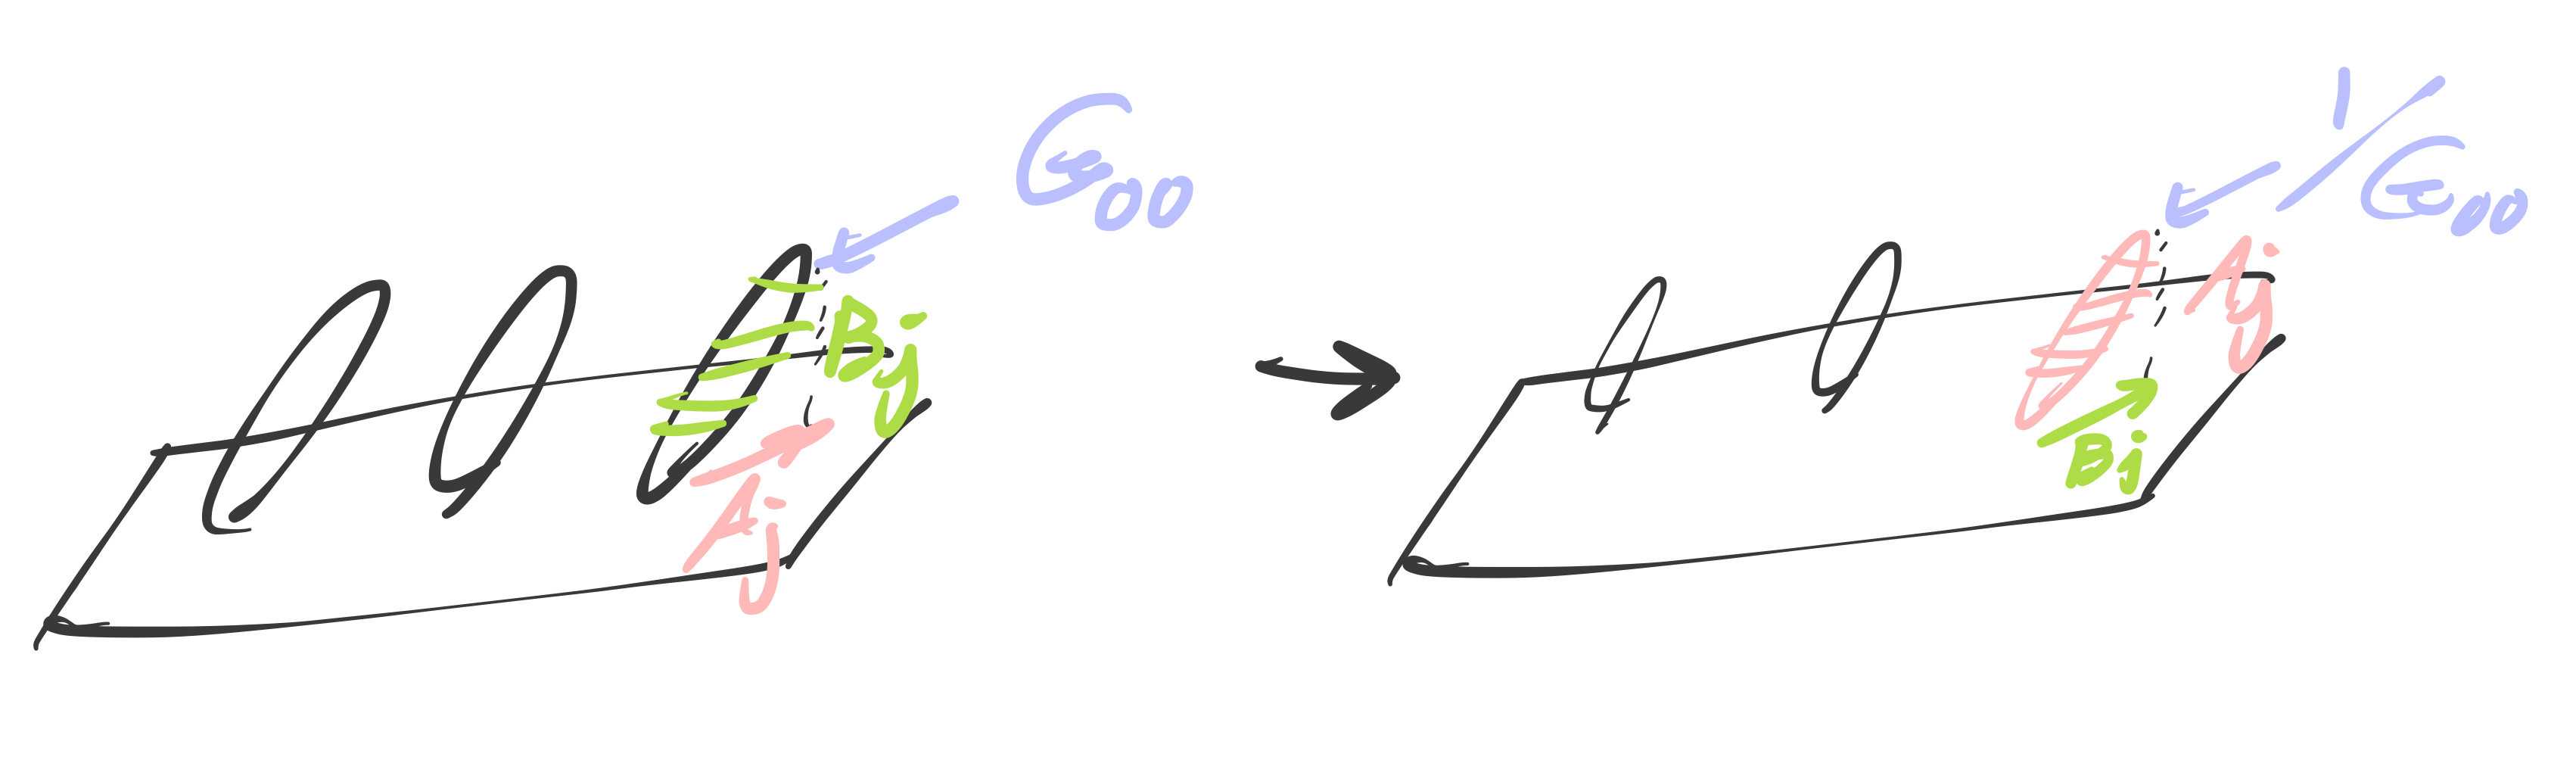 G₀₀
Bj
Aj
1/G₀₀
Aj
Bj